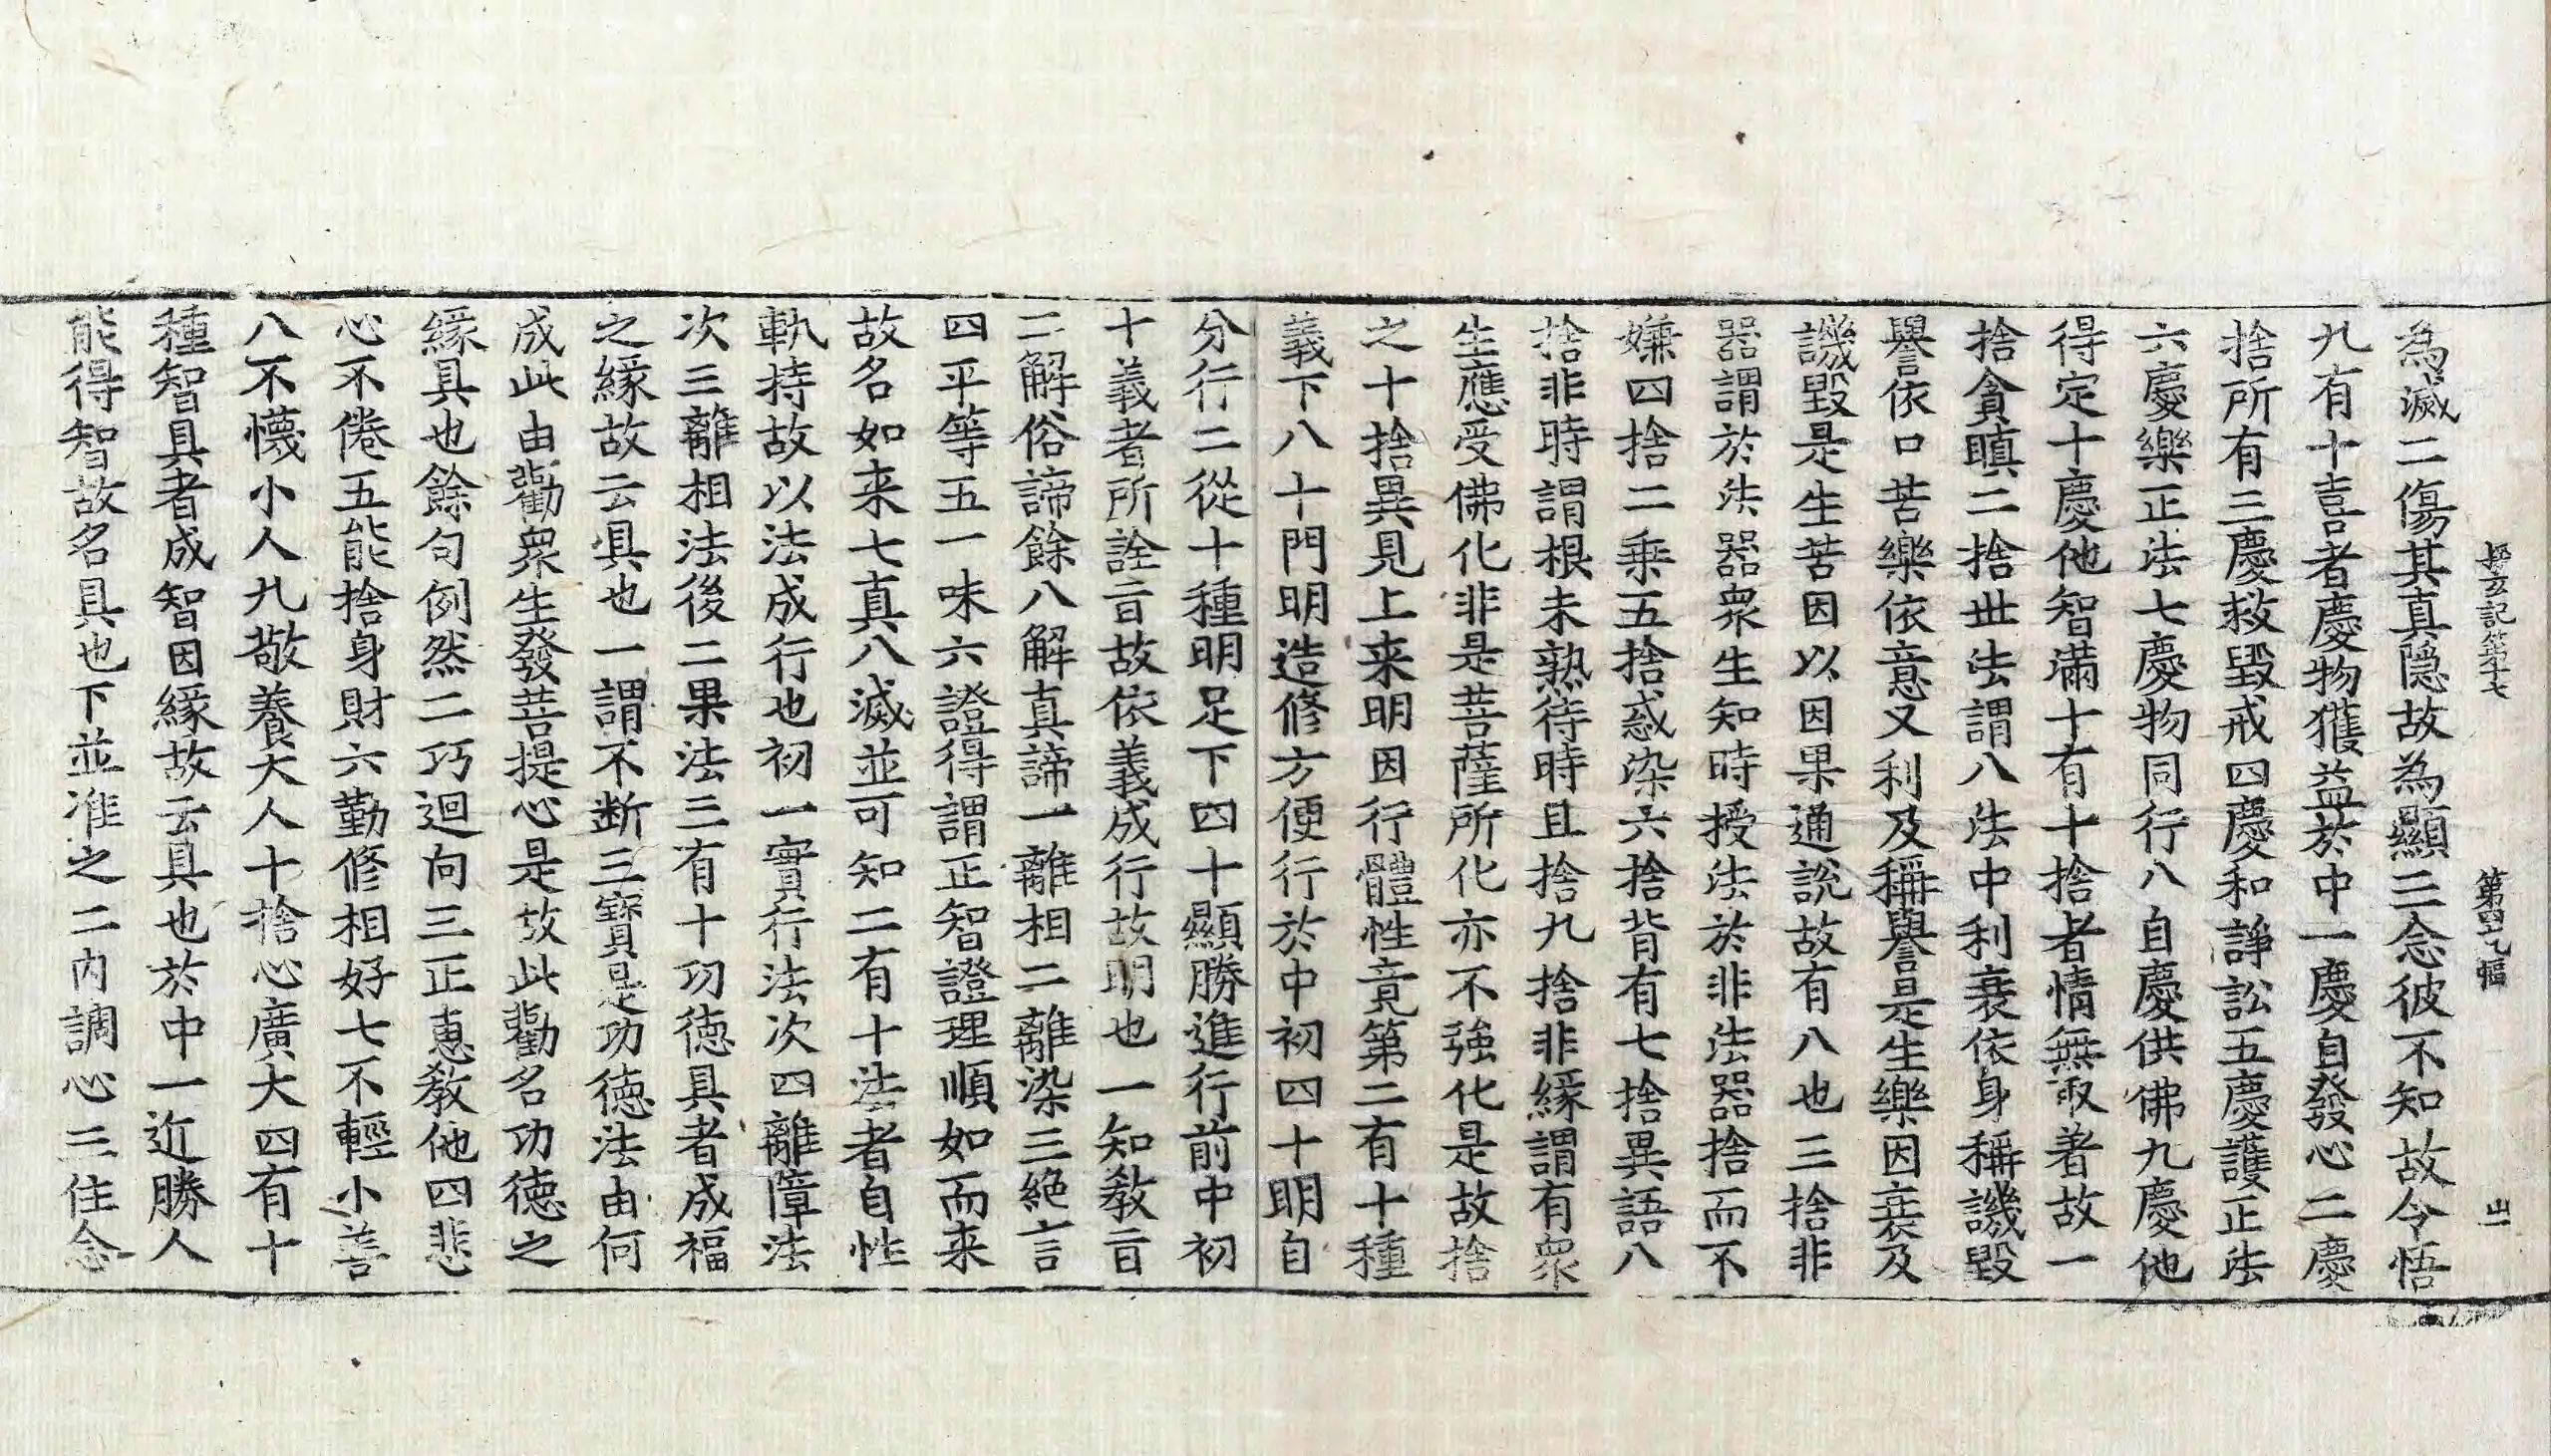 探玄記第十七　第四九幅　出
為滅二傷其真隱故為顯三念彼不知故令悟
九有十喜者慶物獲益於中一慶自發心二慶
捨所有三慶救毀戒四慶和諍訟五慶護正法
六慶樂正法七慶物同行八自慶供佛九慶他
得定十慶他智滿十有十捨者情無取著故一
捨貪瞋二捨世法謂八法中利衰依身稱譏毀
譽依口苦樂依意又利及稱譽是生樂因衰及
譏毀是生苦因以因果通說故有八也三捨非
器謂於法器眾生知時授法於非法器捨而不
嫌四捨二乘五捨惑染六捨背有七捨異語八
捨非時謂根未熟待時且捨九捨非緣謂有眾
生應受佛化非是菩薩所化亦不強化是故捨
之十捨異見上来明因行體性竟第二有十種
義下八十門明造修方便行於中初四十明自
分行二從十種明足下四十顯勝進行前中初
十義者所詮㫖故依義成行故明也一知教㫖
二解俗諦餘八解真諦一離相二離染三絕言
四平等五一味六證得謂正智證理順如而来
故名如来七真八滅並可知二有十法者自性
軌持故以法成行也初一實行法次四離障法
次三離相法後二果法三有十功德具者成福
之緣故云具也一謂不断三寶是功德法由何
成此由勸眾生發菩提心是故此勸名功德之
緣具也餘句例然二巧迴向三正惠教他四悲
心不倦五能捨身財六勤修相好七不輕小善
八不懱小人九敬養大人十捨心廣大四有十
種智具者成智因緣故云具也於中一近勝人
能得智故名具也下並准之二內調心三住念